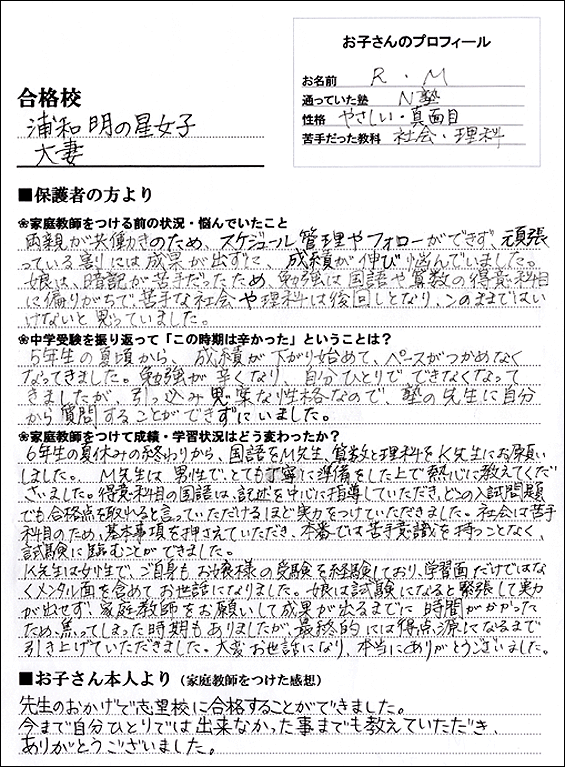 合格校
浦和明の星女子
大妻
お子さんのプロフィール
お名前 R.M
通っていた塾 N塾
性格 やさしい・真面目
苦手だった教科 社会・理科
■保護者の方より
❀家庭教師をつける前の状況・悩んでいたこと
両親が共働きのため、スケジュール管理やフォローができず、頑張
っている割には成果が出ずに、成績が伸び悩んでいました。
娘は、暗記が苦手だったため、勉強は国語や算数の得意科目
に偏りがちで、苦手な社会や理科は後回しとなり、このままではい
けないと思っていました。
❀中学受験を振り返って「この時期は辛かった」ということは？
5年生の夏頃から、成績が下がり始めて、ペースがつかめなく
なってきました。勉強が辛くなり、自分ひとりでできなくなって
きましたが、引っ込み思案な性格なので、塾の先生に自分
から質問することができずにいました。
❀家庭教師をつけて成績・学習状況はどう変わったか？
6年生の夏休みの終わりから、国語をM先生、算数と理科をK先生にお願い
しました。M先生は男性で、とても丁寧に準備をした上で熱心に教えてくだ
さいました。得意科目の国語は、記述を中心に指導していただき、どの入試問題
でも合格点を取れると言っていただけるほど実力をつけていただきました。社会は苦手
科目のため、基本事項を押さえていただき、本番では苦手意識を持つことなく、
試験に臨むことができました。
K先生は女性で、ご自身もお嬢様の受験を経験しており、学習面だけではな
くメンタル面を含めてお世話になりました。娘は試験になると緊張して実力
が出せず、家庭教師をお願いして成果が出るまでに時間がかかった
ため、焦ってしまった時期もありましたが、最終的には得点源になるまで
引き上げていただきました。大変お世話になり、本当にありがとうございました。
■お子さん本人より（家庭教師をつけた感想）
先生のおかげで志望校に合格することができました。
今まで自分ひとりでは出来なかった事までも教えていただき、
ありがとうございました。